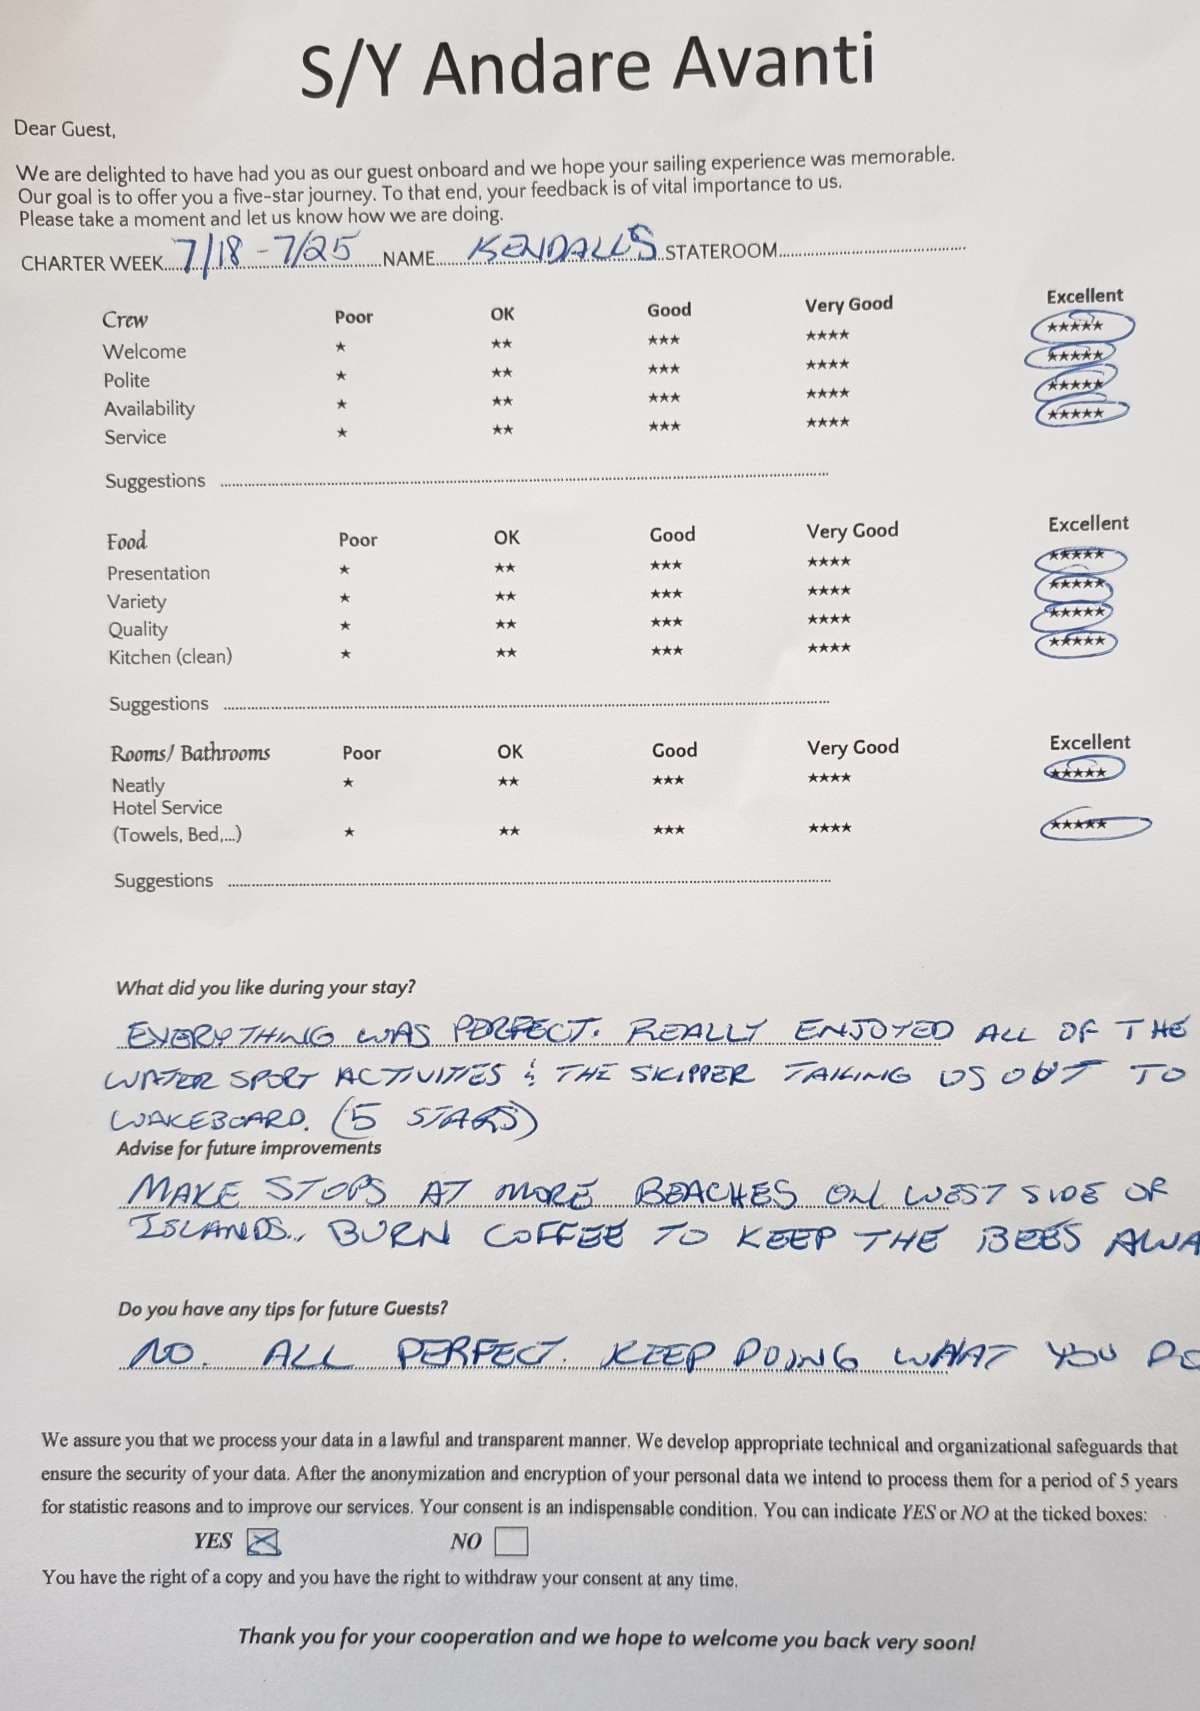 S/Y Andare Avanti
Dear Guest,
We are delighted to have had you as our guest onboard and we hope your sailing experience was memorable.
Our goal is to offer you a five-star journey. To that end, your feedback is of vital importance to us.
Please take a moment and let us know how we are doing.
CHARTER WEEK 7/18 - 7/25 NAME KENDALL'S STATEROOM
Crew Poor OK Good Very Good Excellent
Welcome ★ ★★ ★★★ ★★★★ ★★★★★
Polite ★ ★★ ★★★ ★★★★ ★★★★★
Availability ★ ★★ ★★★ ★★★★ ★★★★★
Service ★ ★★ ★★★ ★★★★ ★★★★★
Suggestions
Food Poor OK Good Very Good Excellent
Presentation ★ ★★ ★★★ ★★★★ ★★★★★
Variety ★ ★★ ★★★ ★★★★ ★★★★★
Quality ★ ★★ ★★★ ★★★★ ★★★★★
Kitchen (clean) ★ ★★ ★★★ ★★★★ ★★★★★
Suggestions
Rooms/ Bathrooms Poor OK Good Very Good Excellent
Neatly ★ ★★ ★★★ ★★★★ ★★★★★
Hotel Service
(Towels, Bed,...) ★ ★★ ★★★ ★★★★ ★★★★★
Suggestions
What did you like during your stay?
EVERYTHING WAS PERFECT. REALLY ENJOYED ALL OF THE
WATER SPORT ACTIVITIES & THE SKIPPER TAKING US OUT TO
WAKEBOARD. (5 STARS)
Advise for future improvements
MAKE STOPS AT MORE BEACHES ON WEST SIDE OF
ISLANDS., BURN COFFEE TO KEEP THE BEES AWA
Do you have any tips for future Guests?
NO. ALL PERFECT. KEEP DOING WHAT YOU DO
We assure you that we process your data in a lawful and transparent manner. We develop appropriate technical and organizational safeguards that
ensure the security of your data. After the anonymization and encryption of your personal data we intend to process them for a period of 5 years
for statistic reasons and to improve our services. Your consent is an indispensable condition. You can indicate YES or NO at the ticked boxes:
YES ☒ NO ☐
You have the right of a copy and you have the right to withdraw your consent at any time.
Thank you for your cooperation and we hope to welcome you back very soon!